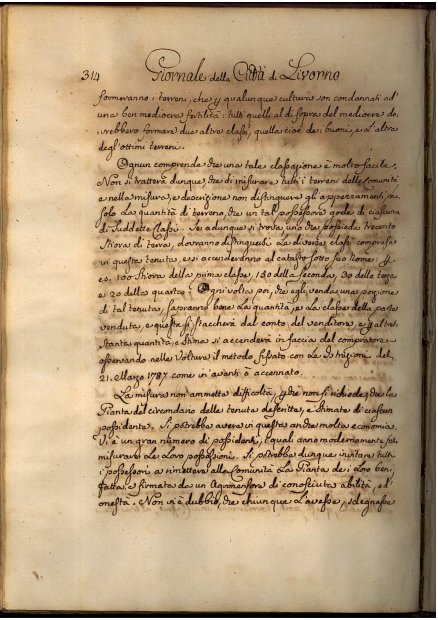 314 Giornale della Città di Livorno
formeranno i terreni, che p qualunque cultura son condannati ad
una ben mediocre fertilità: tutti quelli al di sopra del mediocre do:
:vrebbero formare due altre classi, quella cioè dei buoni, e l'altra
degl'ottimi terreni.
Ognun comprende che una tale classazione è molto facile.
Non si tratterà dunque, che di misurare tutti i terreni della Comunità
e nella misura, e descrizione non distinguere gli appezzamenti, ma
solo la quantità di terreno, che un tal possessore gode di ciascuna
di suddette classi. Se adunque si trova uno che possieda trecento
Stiora di terra, dovranno distinguersi le diverse classi comprese
in questa tenuta, e si accenderanno al catasto sotto suo nome p
es. 100 Stiora della prima classe, 150 della seconda, 30 della terza
e 20 della quarta. Ogni volta poi, che egli venda una porzione
di tal tenuta, sapranno bene la quantità, e la classe della parte
venduta, e questa si staccherà dal conto del venditore, e p altret:
:tanta quantità, e stima si accenderà in faccia del compratore,
osservando nelle Volture il metodo fissato con le Istruzioni del
21. Marzo 1787 come in avanti ò accennato.
La misura non ammette difficoltà, p che non si richiede, che la
Pianta del circondario delle tenute descritte, e stimate di ciascun
possidente. Si potrebbe avere in questa anche molta economia.
Vi è un gran numero di possidenti, i quali anno modernamente fatte
misurare le loro possessioni. Si potrebbe dunque invitare tutti
i possessori a rimettere alla Comunità la Pianta dei loro beni
fatta, e firmata da un Agrimensore di conosciuta abilità, ed
onestà. Non vi è dubbio, che chiunque l'avesse, sdegnasse